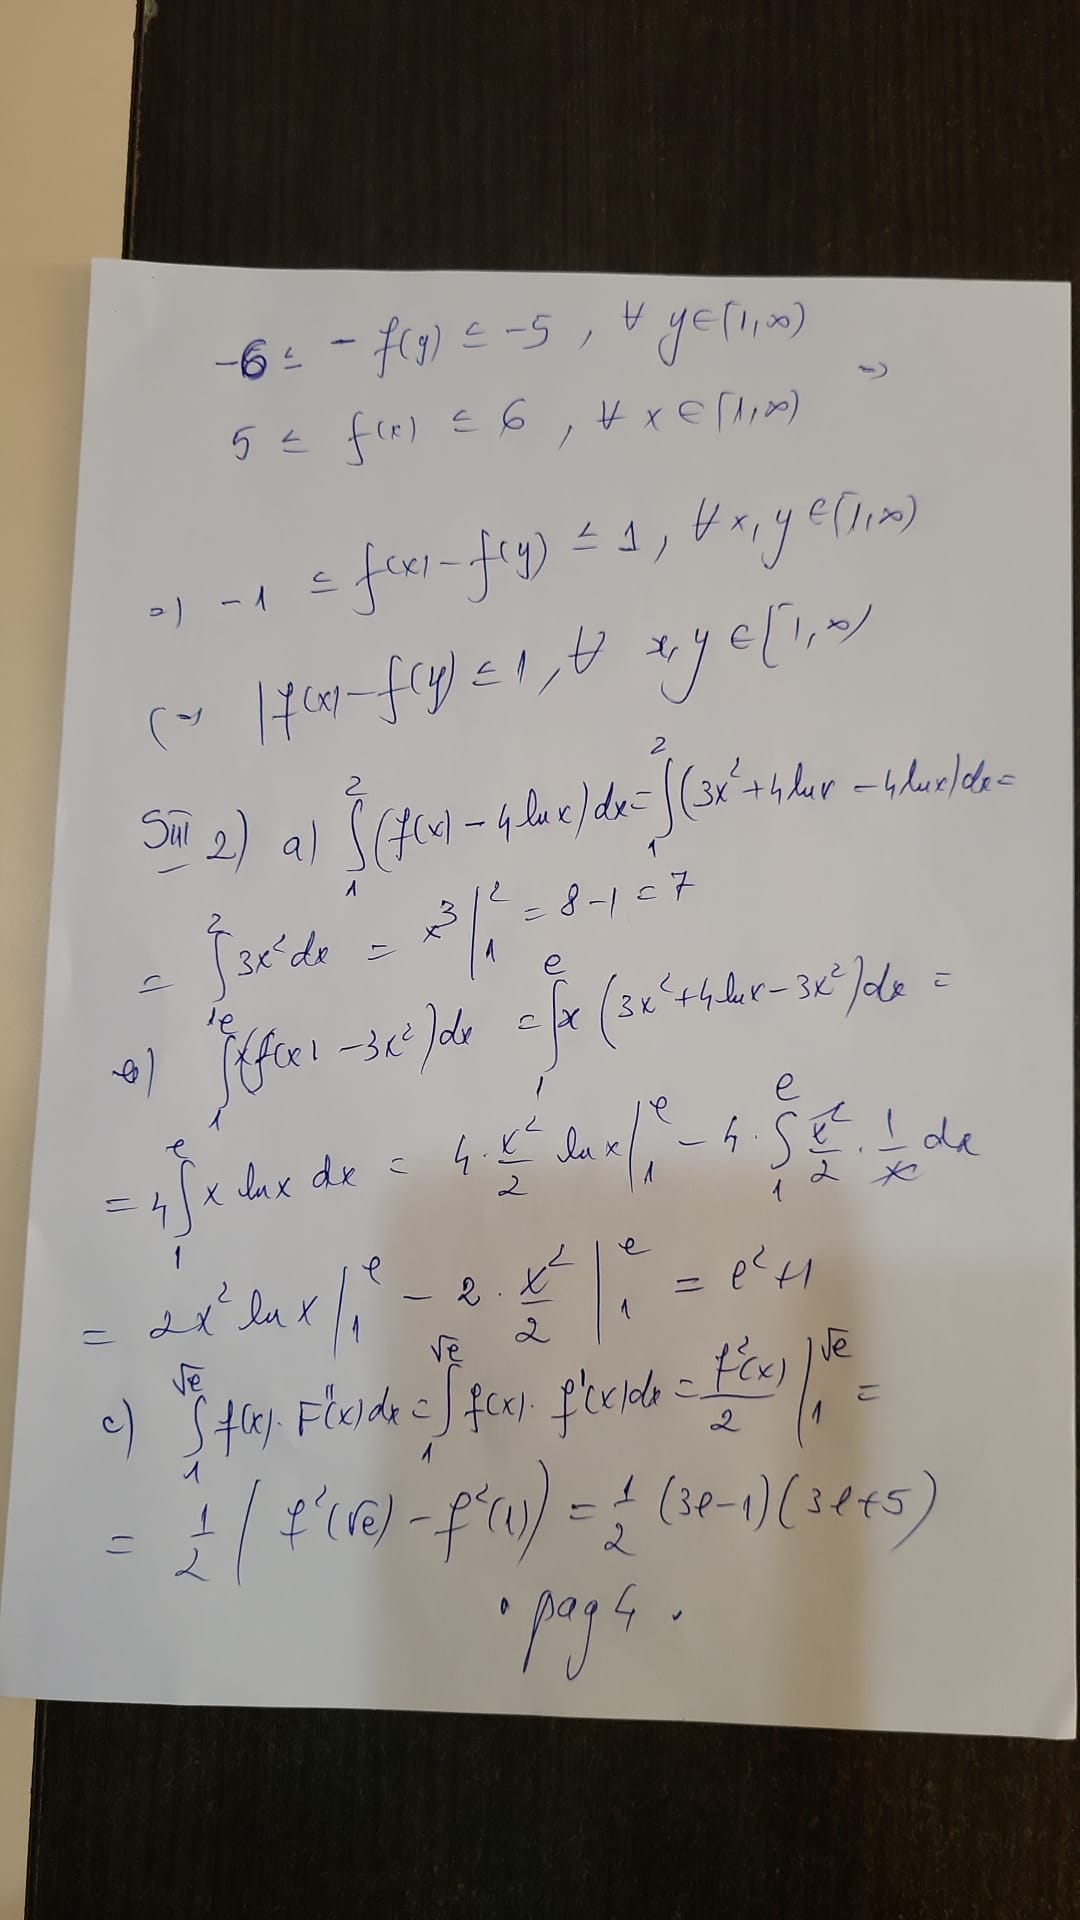 -6 ≤ - f(y) ≤ -5 , ∀ y∈[1,∞)
=>
5 ≤ f(x) ≤ 6 , ∀ x ∈ [1,∞)
=> -1 ≤ f(x) - f(y) ≤ 1, ∀ x, y ∈ [1,∞)
(=> |f(x) - f(y)| ≤ 1, ∀ x, y ∈ [1,∞)
SIII 2) a) ∫₁² (f(x) - 4 ln x) dx = ∫₁² (3x² + 4 ln x - 4 ln x) dx =
= ∫₁² 3x² dx = x³ |₁² = 8 - 1 = 7
b) ∫₁ᵉ x(f(x) - 3x²) dx = ∫₁ᵉ x (3x² + 4 ln x - 3x²) dx =
= 4 ∫₁ᵉ x ln x dx = 4 · x²/2 ln x |₁ᵉ - 4 · ∫₁ᵉ x²/2 · 1/x dx
= 2x² ln x |₁ᵉ - 2 · x²/2 |₁ᵉ = e² + 1
c) ∫₁^√e f(x) · F''(x) dx = ∫₁^√e f(x) · f'(x) dx = f²(x)/2 |₁^√e =
= 1/2 (f²(√e) - f²(1)) = 1/2 (3e-1)(3e+5)
· pag 4 .